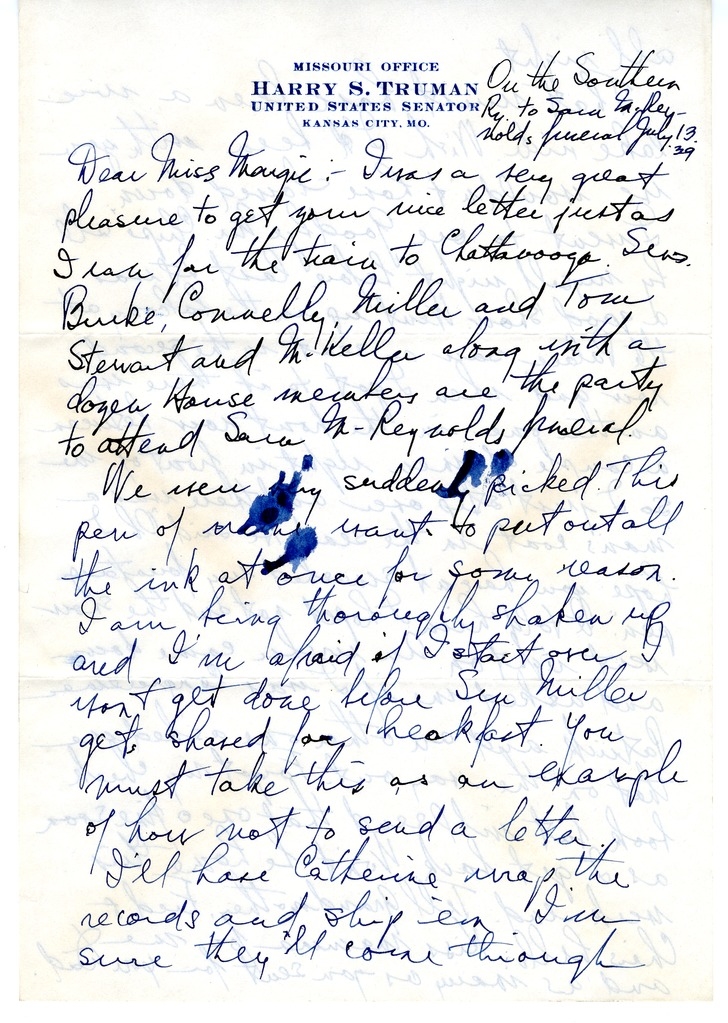 MISSOURI OFFICE
HARRY S. TRUMAN
UNITED STATES SENATOR
KANSAS CITY, MO.
On the Southern
Ry. to Sam McRey-
nolds funeral July 13.
39
Dear Miss Margie:- I was a very great
pleasure to get your nice letter just as
I ran for the train to Chattanooga. Sens.
Burke, Connelly, Miller and Tom
Stewart and McKellar along with a
dozen House members are the party
to attend Sam McReynolds funeral.
We were very suddenly picked. This
pen of mine wants to put out all
the ink at once for some reason.
I am being thoroughly shaken up
and I'm afraid if I start over I
won't get done before Sen Miller
gets shaved for breakfast. You
must take this as an example
of how not to send a letter.
I'll have Catherine wrap the
records and ship 'em. I'm
sure they'll come through